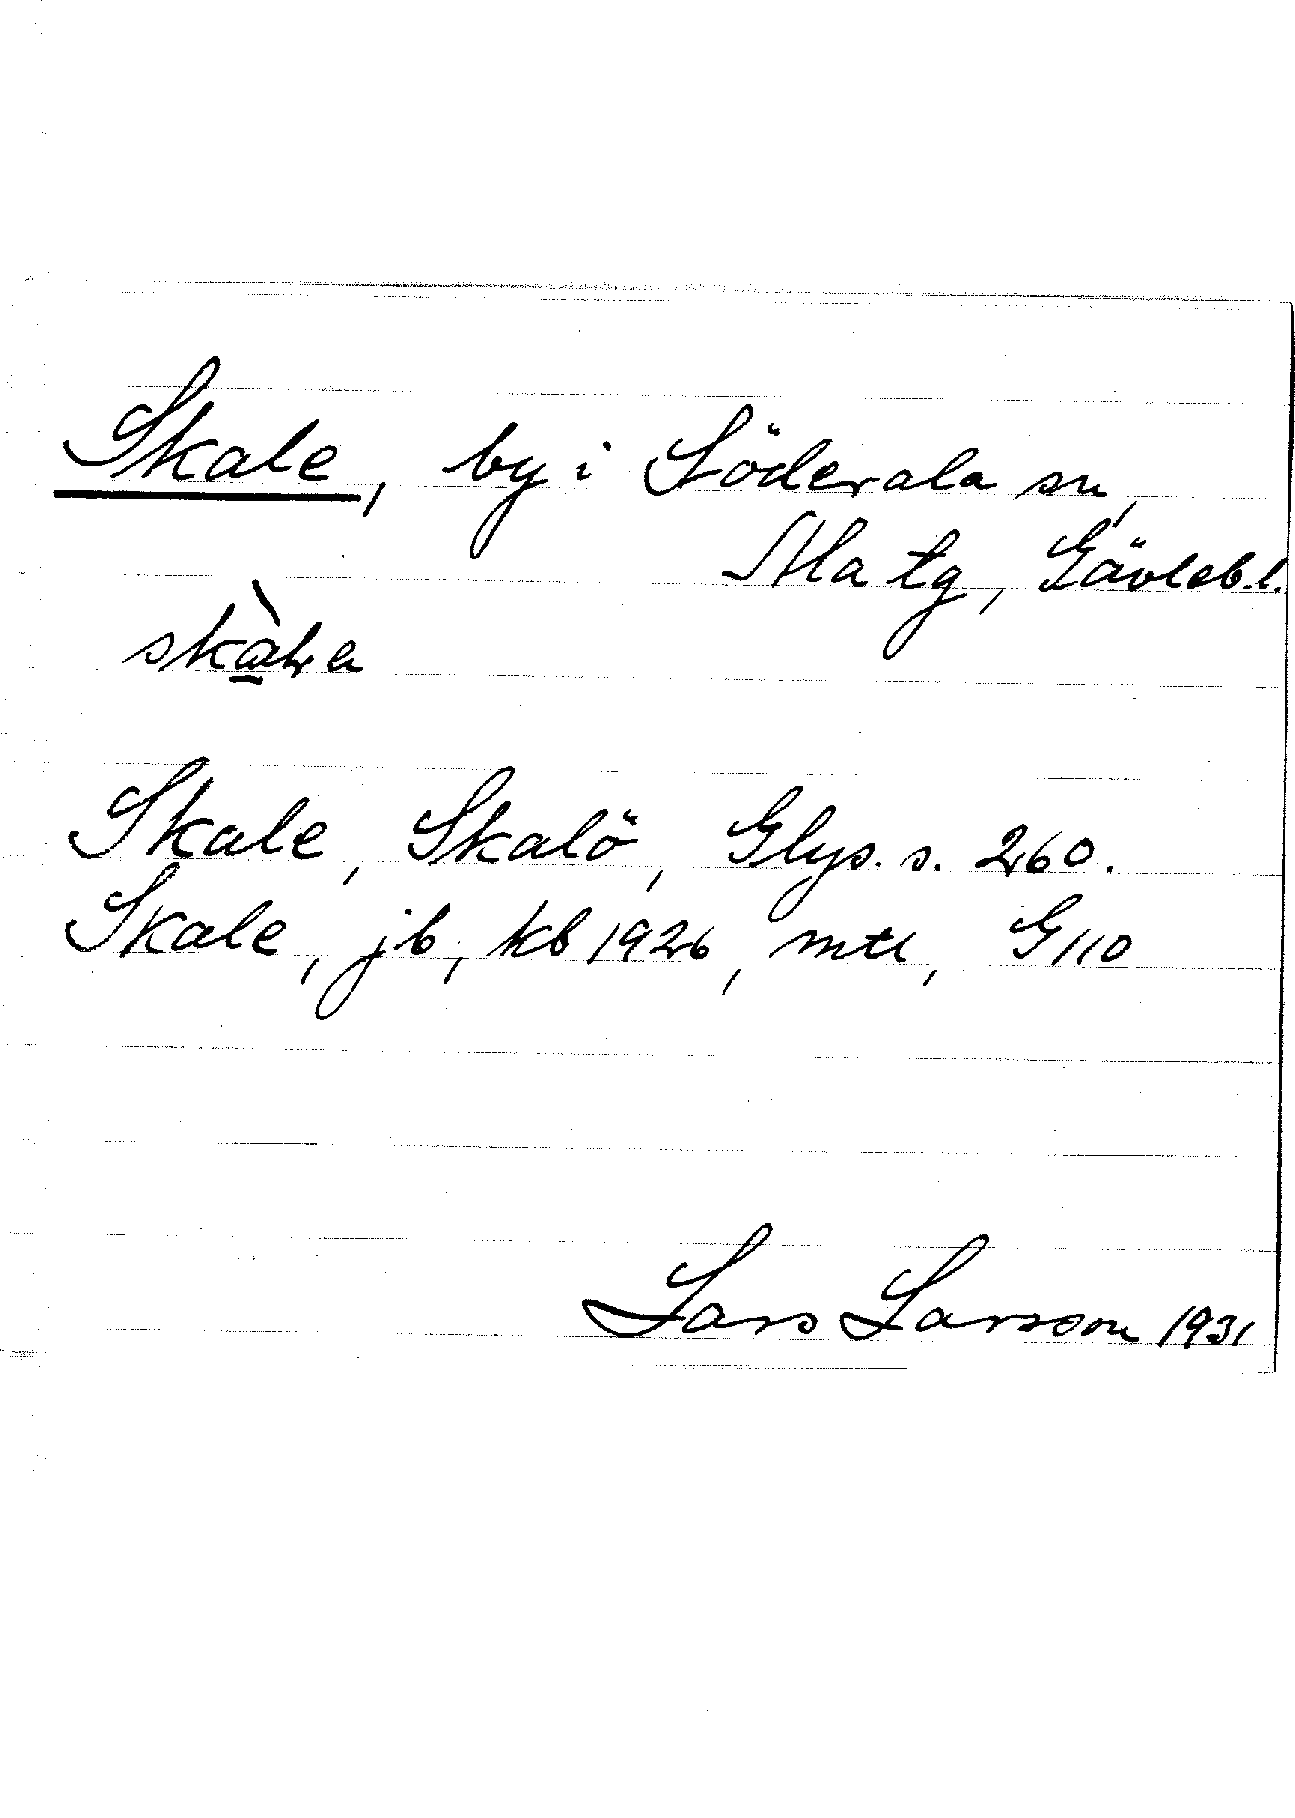 Skale, by i Söderala sn,
Ala tg, Gävleb.l.
skàla
Skale, Skalö, Glys. s. 260.
Skale, jb, kb 1926, mtl, G110
Lars Larsson 1931